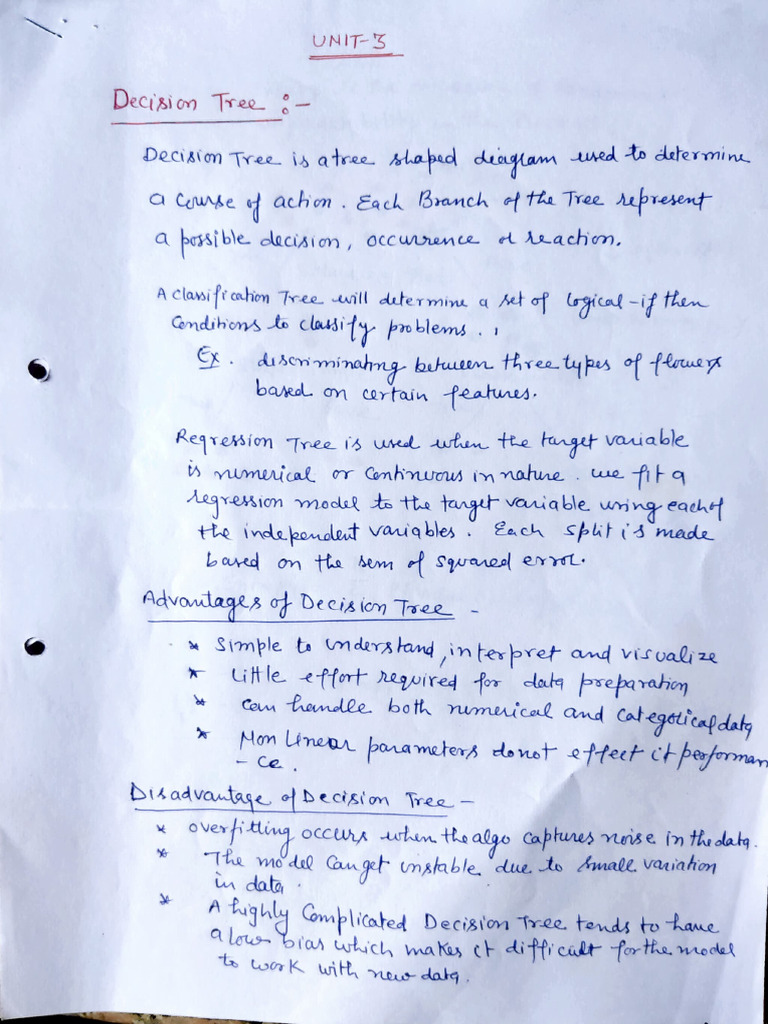 UNIT-3
Decision Tree :-
Decision Tree is a tree shaped diagram used to determine
a course of action. Each Branch of the Tree represent
a possible decision, occurrence or reaction.
A classification Tree will determine a set of logical-if then
Conditions to classify problems.
Ex. discriminating between three types of flowers
based on certain features.
Regression Tree is used when the target variable
is numerical or continuous in nature. we fit a
regression model to the target variable using each of
the independent variables. Each split is made
based on the sum of squared error.
Advantages of Decision Tree -
* Simple to understand, interpret and visualize
* Little effort required for data preparation
* Can handle both numerical and categorical data
* Non Linear parameters donot effect it performan
- ce.
Disadvantage of Decision Tree -
* overfitting occurs when the algo captures noise in the data.
* The model can get unstable due to small variation
in data.
* A highly Complicated Decision Tree tends to have
a low bias which makes it difficult for the model
to work with new data.